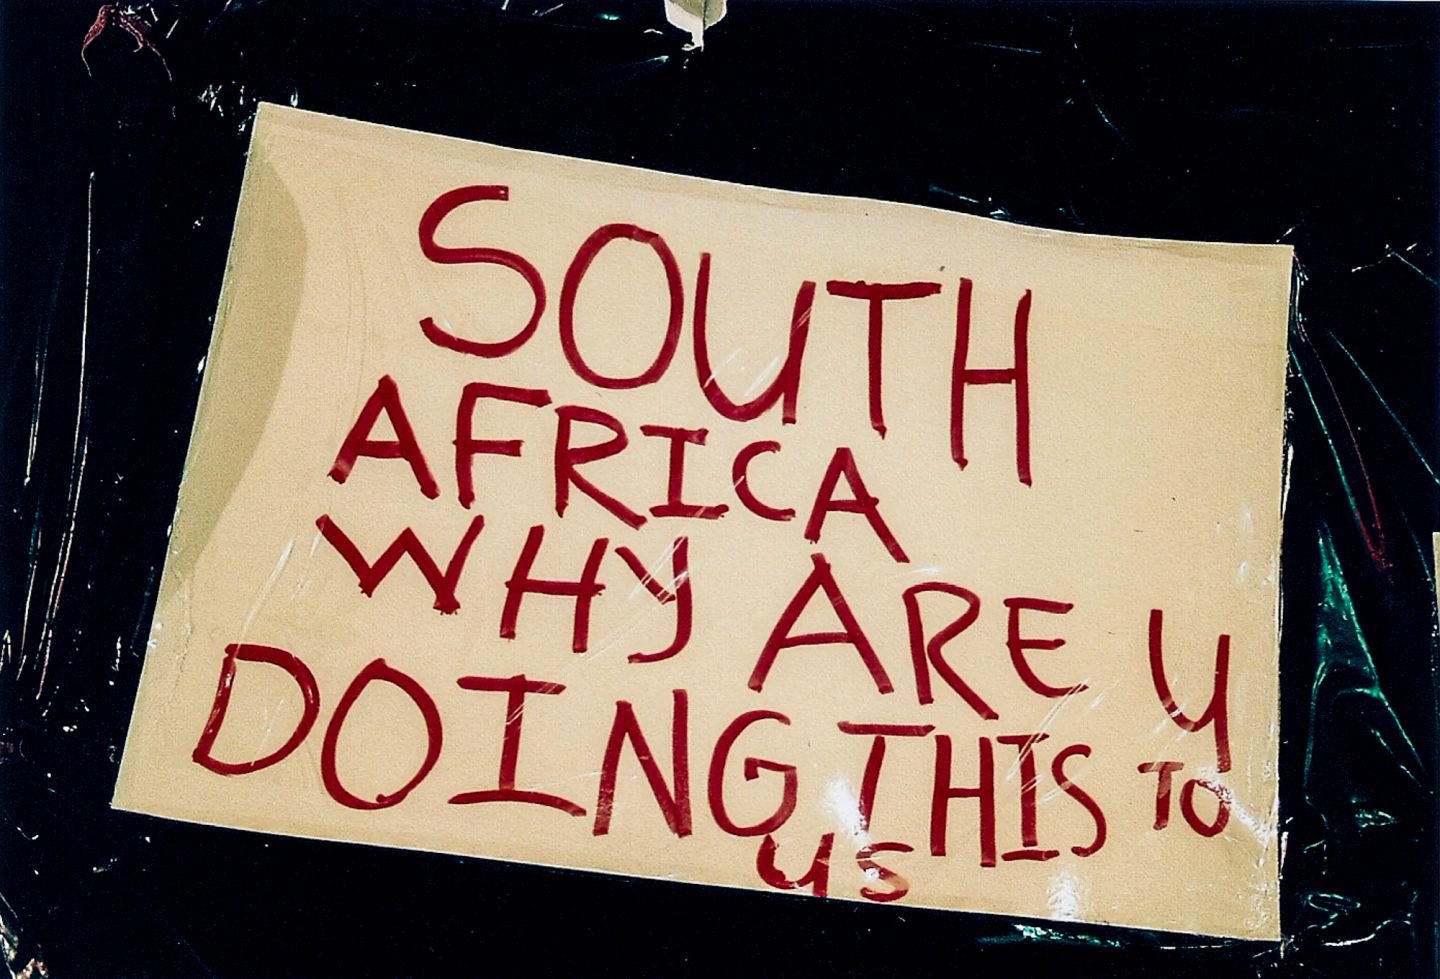 SOUTH
AFRICA
WHY ARE Y
DOING THIS TO
US